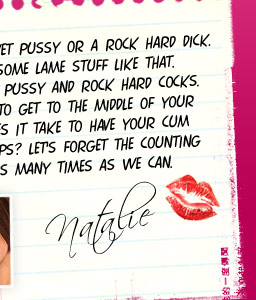 ET PUSSY OR A ROCK HARD DICK.
SOME LAME STUFF LIKE THAT.
PUSSY AND ROCK HARD COCKS.
TO GET TO THE MIDDLE OF YOUR
S IT TAKE TO HAVE YOUR CUM
PS? LET'S FORGET THE COUNTING
S MANY TIMES AS WE CAN.
Natalie